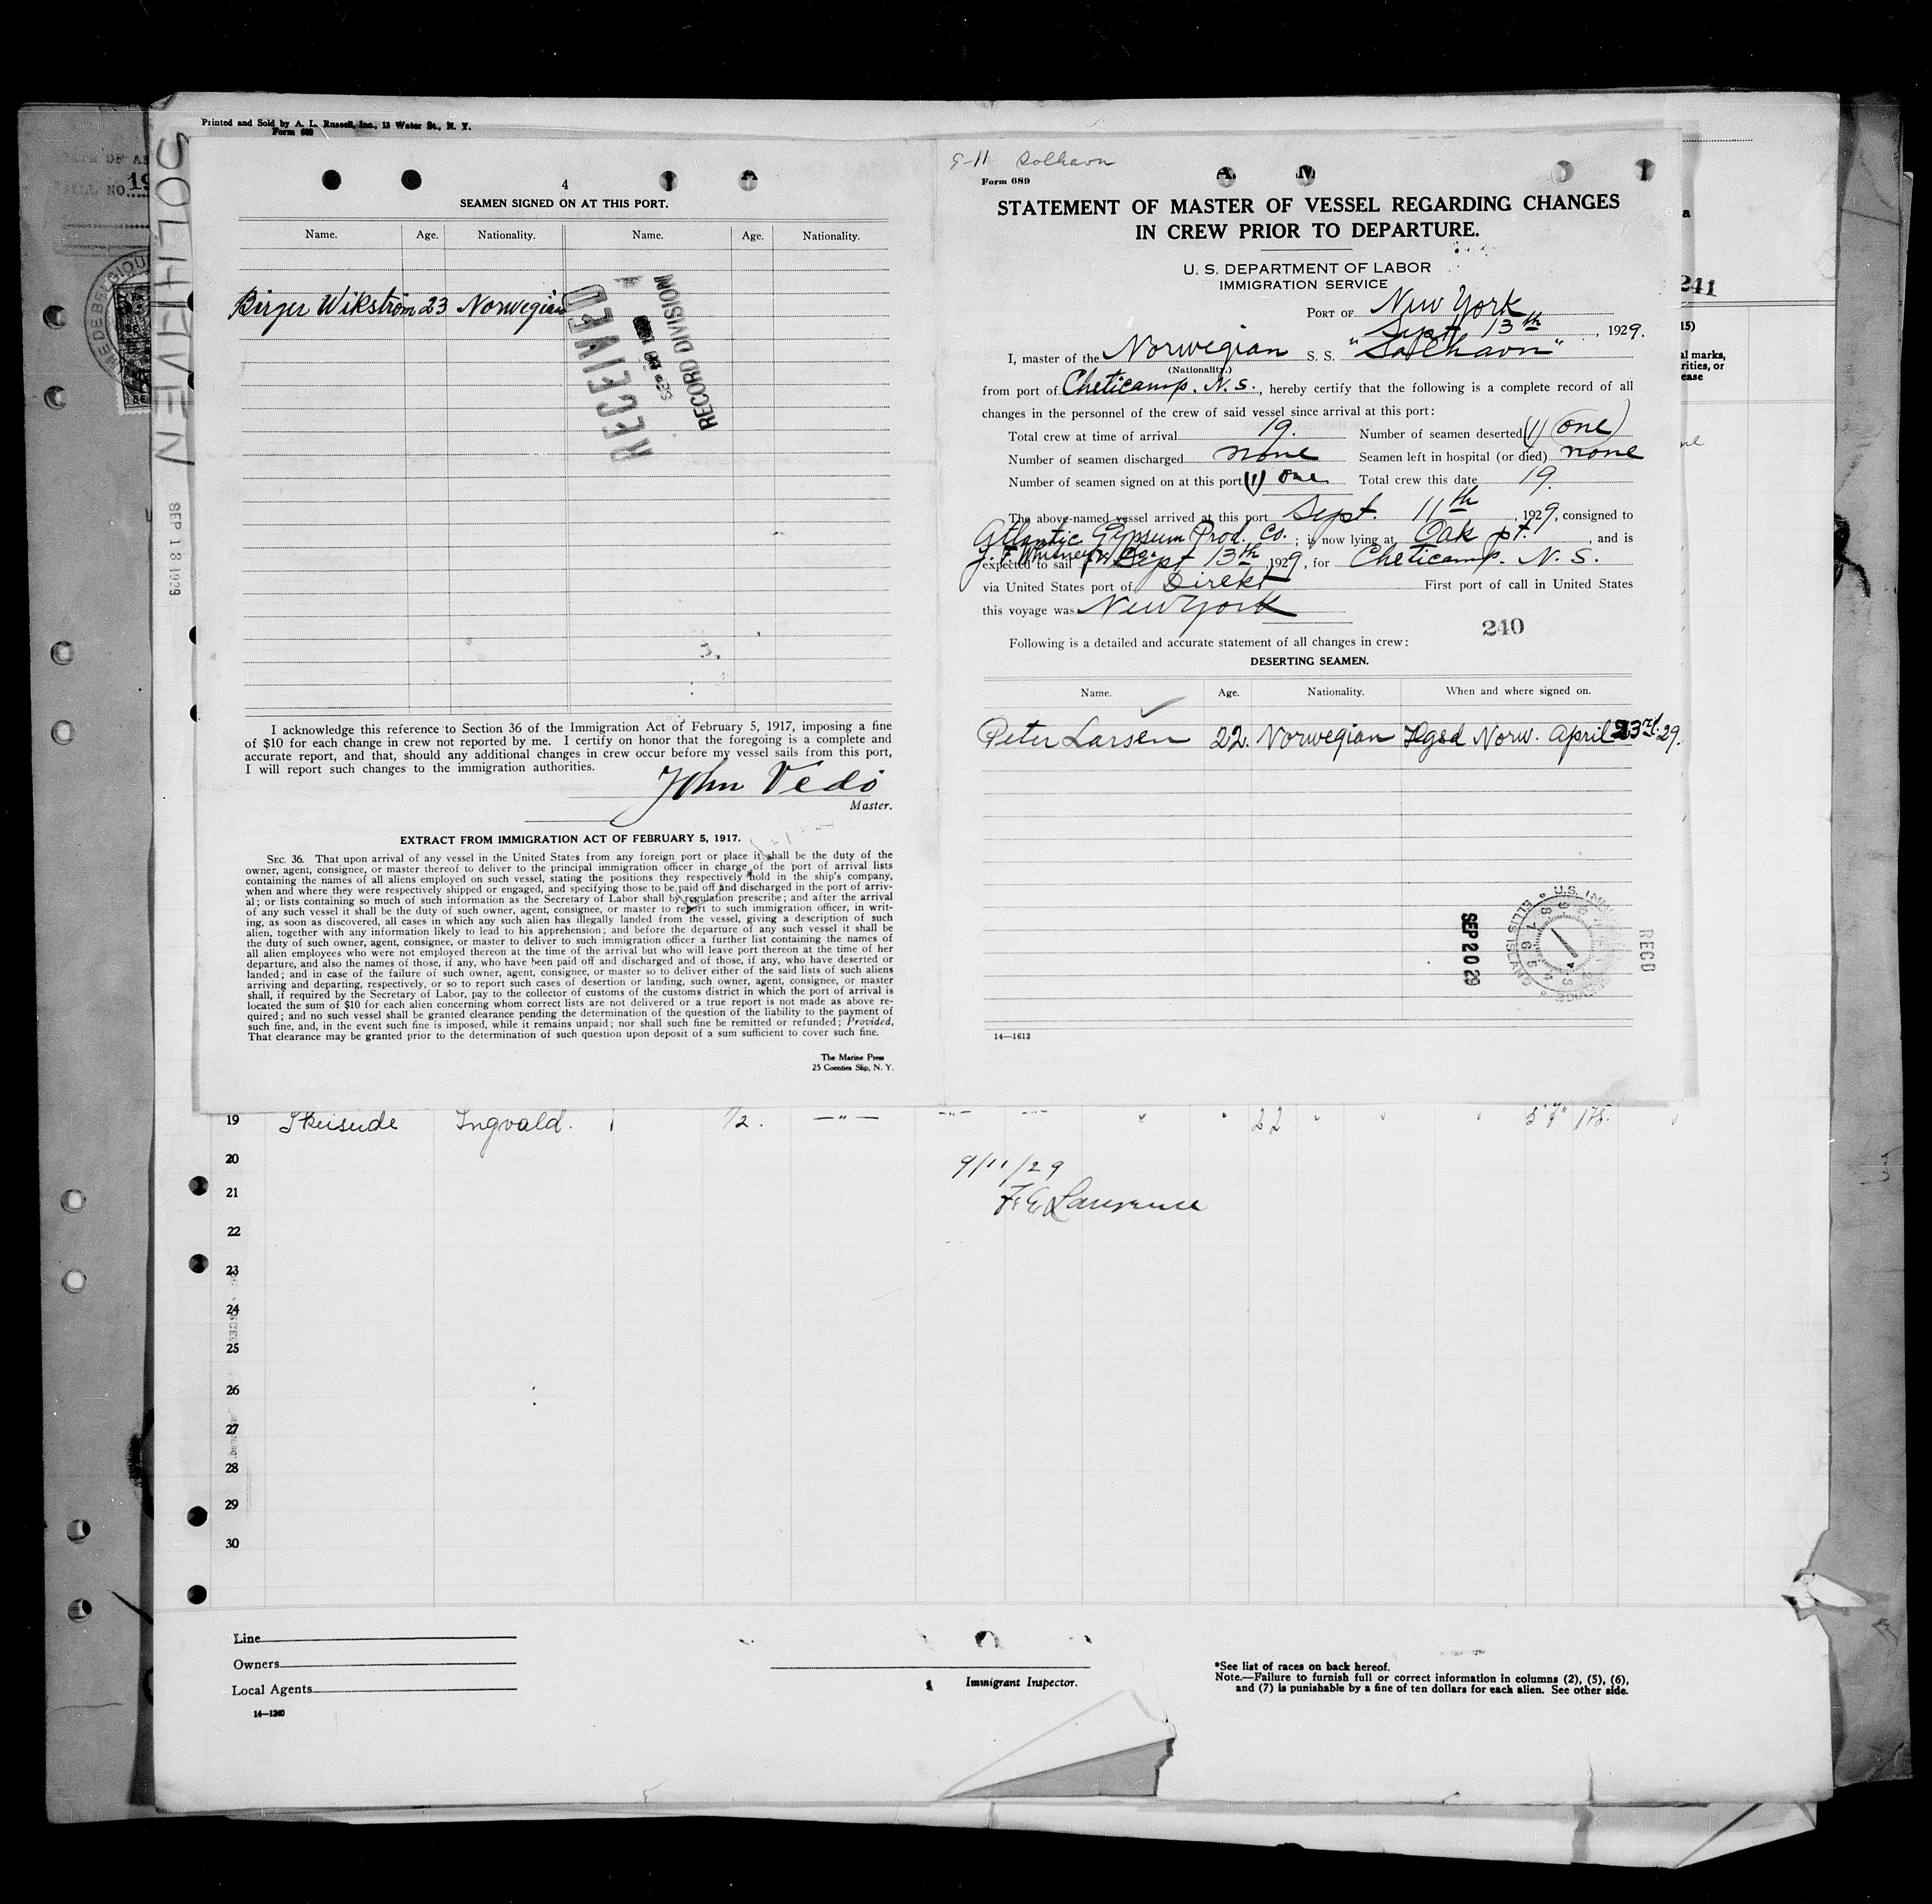 Printed and Sold by A. L. Russell, Inc., 13 Water St., N. Y.
Form 689
SOLHAVEN
SEP 13 1929
4
SEAMEN SIGNED ON AT THIS PORT.
Name. Age. Nationality. Name. Age. Nationality.
Birger Wikström 23 Norwegian
RECEIVED
RECORD DIVISION
I acknowledge this reference to Section 36 of the Immigration Act of February 5, 1917, imposing a fine
of $10 for each change in crew not reported by me. I certify on honor that the foregoing is a complete and
accurate report, and that, should any additional changes in crew occur before my vessel sails from this port,
I will report such changes to the immigration authorities.
John Vedö
Master.
EXTRACT FROM IMMIGRATION ACT OF FEBRUARY 5, 1917.
SEC. 36. That upon arrival of any vessel in the United States from any foreign port or place it shall be the duty of the
owner, agent, consignee, or master thereof to deliver to the principal immigration officer in charge of the port of arrival lists
containing the names of all aliens employed on such vessel, stating the positions they respectively hold in the ship's company,
when and where they were respectively shipped or engaged, and specifying those to be paid off and discharged in the port of arriv-
al; or lists containing so much of such information as the Secretary of Labor shall by regulation prescribe; and after the arrival
of any such vessel it shall be the duty of such owner, agent, consignee, or master to report to such immigration officer, in writ-
ing, as soon as discovered, all cases in which any such alien has illegally landed from the vessel, giving a description of such
alien, together with any information likely to lead to his apprehension; and before the departure of any such vessel it shall be
the duty of such owner, agent, consignee, or master to deliver to such immigration officer a further list containing the names of
all alien employees who were not employed thereon at the time of the arrival but who will leave port thereon at the time of her
departure, and also the names of those, if any, who have been paid off and discharged and of those, if any, who have deserted or
landed; and in case of the failure of such owner, agent, consignee, or master so to deliver either of the said lists of such aliens
arriving and departing, respectively, or so to report such cases of desertion or landing, such owner, agent, consignee, or master
shall, if required by the Secretary of Labor, pay to the collector of customs of the customs district in which the port of arrival is
located the sum of $10 for each alien concerning whom correct lists are not delivered or a true report is not made as above re-
quired; and no such vessel shall be granted clearance pending the determination of the question of the liability to the payment of
such fine, and, in the event such fine is imposed, while it remains unpaid; nor shall such fine be remitted or refunded; Provided,
That clearance may be granted prior to the determination of such question upon deposit of a sum sufficient to cover such fine.
The Marine Press
25 Coenties Slip, N. Y.
9-11 Solhavn
Form 689
STATEMENT OF MASTER OF VESSEL REGARDING CHANGES
IN CREW PRIOR TO DEPARTURE.
U. S. DEPARTMENT OF LABOR
IMMIGRATION SERVICE
PORT OF New York
Sept. 13th, 1929.
I, master of the Norwegian S. S. "Solhavn"
(Nationality.)
from port of Cheticamp. N. S., hereby certify that the following is a complete record of all
changes in the personnel of the crew of said vessel since arrival at this port:
Total crew at time of arrival 19. Number of seamen deserted (1) (one)
Number of seamen discharged none Seamen left in hospital (or died) none
Number of seamen signed on at this port (1) one Total crew this date 19.
The above-named vessel arrived at this port Sept. 11th, 1929, consigned to
Atlantic Gypsum Prod. Co.; is now lying at Oak pt., and is
J. F. Whitney & Co.
expected to sail Sept 13th 1929, for Cheticamp. N. S.
via United States port of Direkt First port of call in United States
this voyage was New York
240
Following is a detailed and accurate statement of all changes in crew:
DESERTING SEAMEN.
Name. Age. Nationality. When and where signed on.
Peter Larsen 22. Norwegian Hgsd Norw. April 23rd. 29.
SEP 20 29
RECD
14—1613
241
al marks,
rities, or
ease
19 Skeisude Ingvald. 1/2. —"— 22 5'7" 175.
20
9/11/29
21
F. E. Lawrence
22
23
24
25
26
27
28
29
30
Line
Owners
Local Agents
14—1240
Immigrant Inspector.
*See list of races on back hereof.
Note.—Failure to furnish full or correct information in columns (2), (5), (6),
and (7) is punishable by a fine of ten dollars for each alien. See other side.